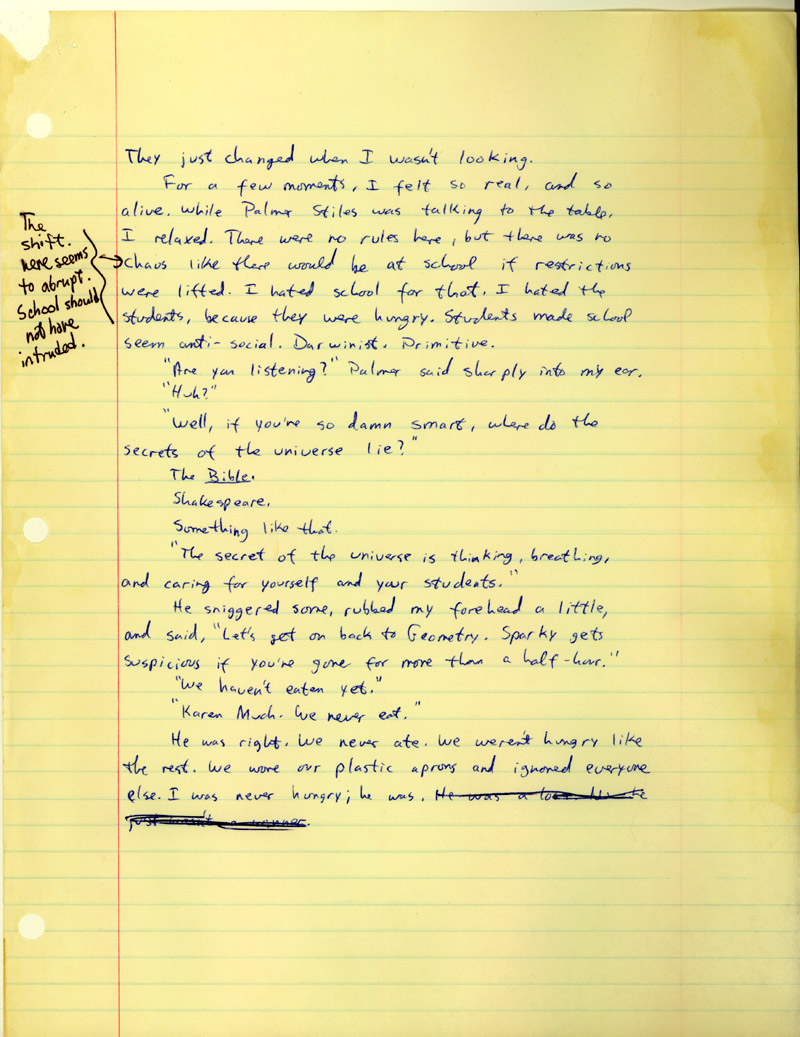 They just changed when I wasn't looking.
For a few moments, I felt so real, and so
alive. While Palmer Stiles was talking to the table,
I relaxed. There were no rules here, but there was no
chaos like there would be at school if restrictions
were lifted. I hated school for that. I hated the
students, because they were hungry. Students made school
seem anti-social. Darwinist. Primitive.
"Are you listening?" Palmer said sharply into my ear.
"Huh?"
"Well, if you're so damn smart, where do the
secrets of the universe lie?"
The Bible.
Shakespeare.
Something like that.
"The secret of the universe is thinking, breathing,
and caring for yourself and your students."
He sniggered some, rubbed my forehead a little,
and said, "Let's get on back to Geometry. Sparky gets
suspicious if you're gone for more than a half-hour."
"We haven't eaten yet."
"Karen Much. We never eat."
He was right. We never ate. We weren't hungry like
the rest. We wore our plastic aprons and ignored everyone
else. I was never hungry; he was. He was a
just wasn't a winner.
The
shift.
here seems
to abrupt.
School should
not have
intruded.